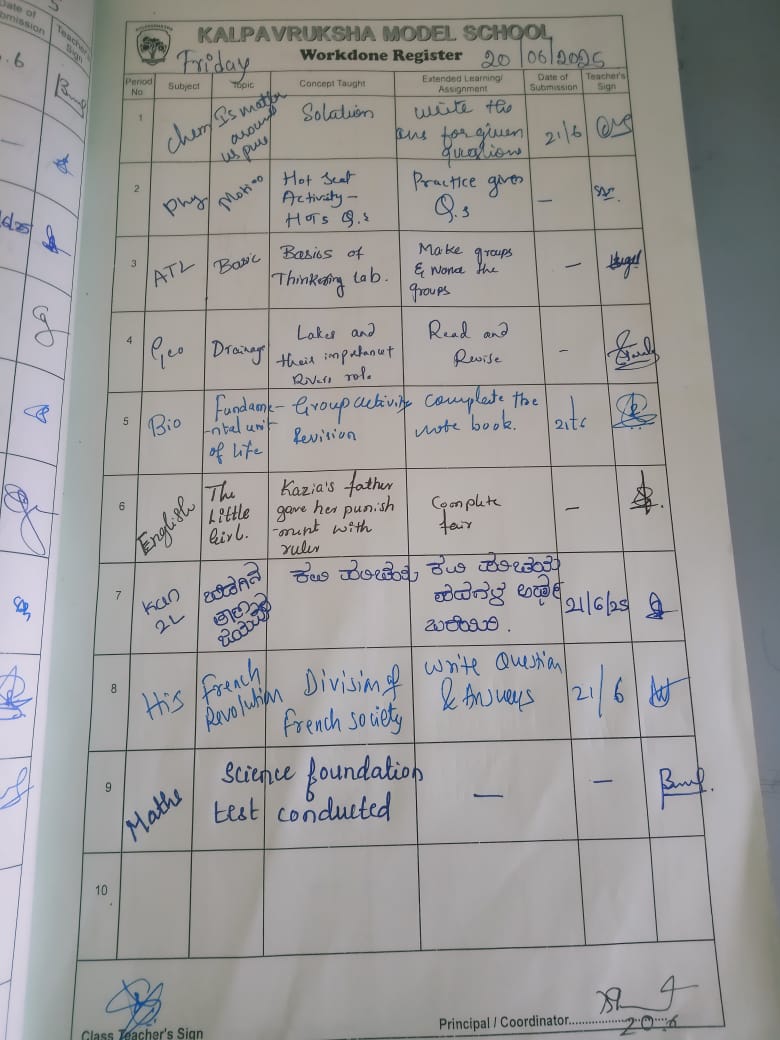 KALPAVRUKSHA MODEL SCHOOL
Workdone Register
Friday
20/06/2025
Period No
Subject
Topic
Concept Taught
Extended Learning/ Assignment
Date of Submission
Teacher's Sign
1
Chem
Is matter
around
us pure
Solation
write the
ans for given
questions
21/6
2
Phy
Motion
Hot Seat
Activity-
HOTS Q.s
Practice given
Q.s
-
3
ATL
Basic
Basics of
Thinkering Lab.
Make groups
& the
groups
-
4
Geo
Drainage
Lakes and
their
Rivers role
Read and
Revise
-
5
Bio
Fundame-
-ntal unit
of life
Group activity
Revision
Complete the
note book.
21/6
6
English
The
Little
Girl.
Kazia's father
gave her punish
-ment with
ruler
Complete
fair
-
7
Kan
2L
ಕವಿ ಪರಿಚಯ
ಕವಿ ಪರಿಚಯ
ಪದಗಳ ಅರ್ಥ
ಬರೆಯಿರಿ.
21/6/25
8
His
French
Revolution
Divisin of
French society
Write Question
& Answers
21/6
9
Maths
Science foundation
test conducted
-
-
10
Class Teacher's Sign
Principal / Coordinator
20.6
Date of
Submission
Teacher's
Sign
.6